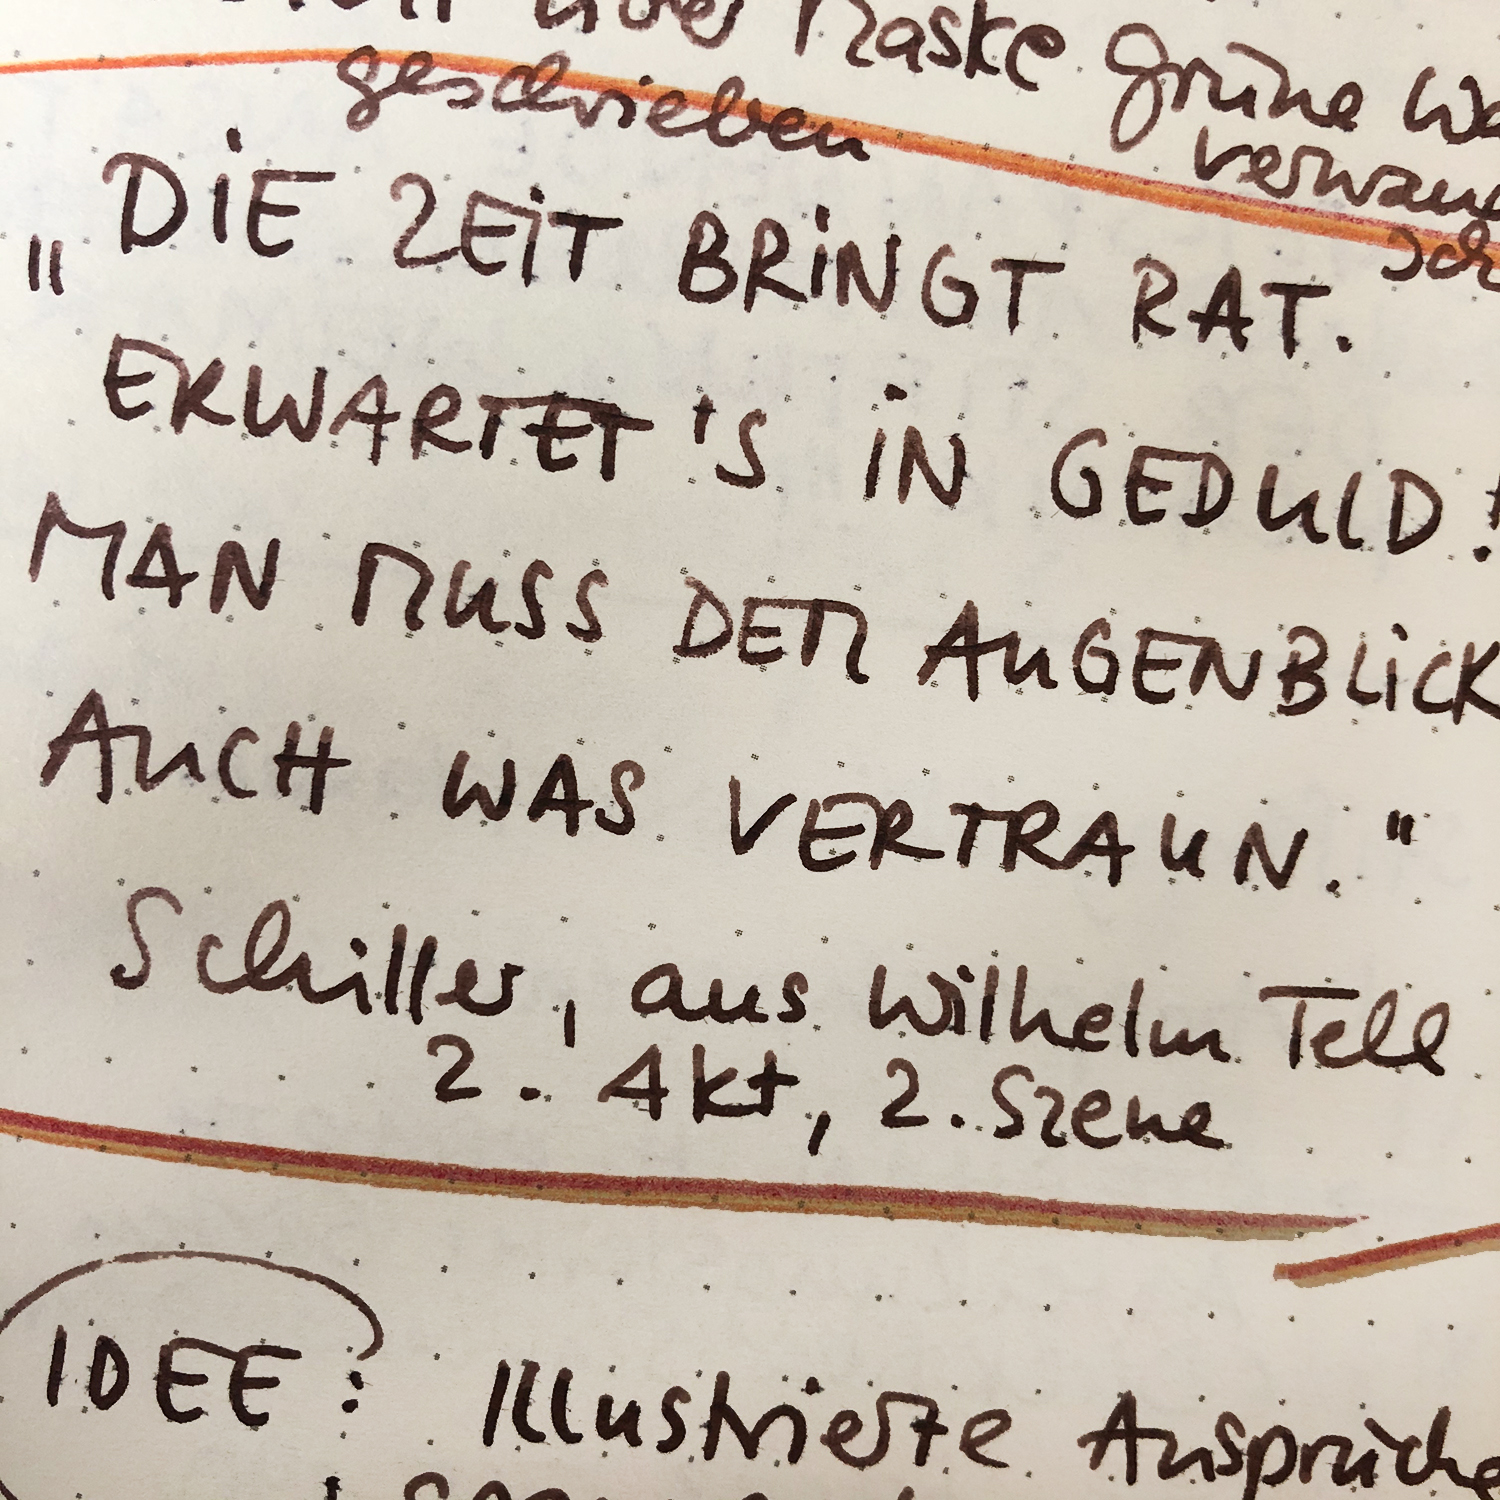 über Maske grüne
geschrieben
„DIE ZEIT BRINGT RAT.
ERWARTET'S IN GEDULD!
MAN MUSS DEM AUGENBLICK
AUCH WAS VERTRAUN."
Schiller, aus Wilhelm Tell
2. Akt, 2. Szene
IDEE: Illustrierte Aussprüche